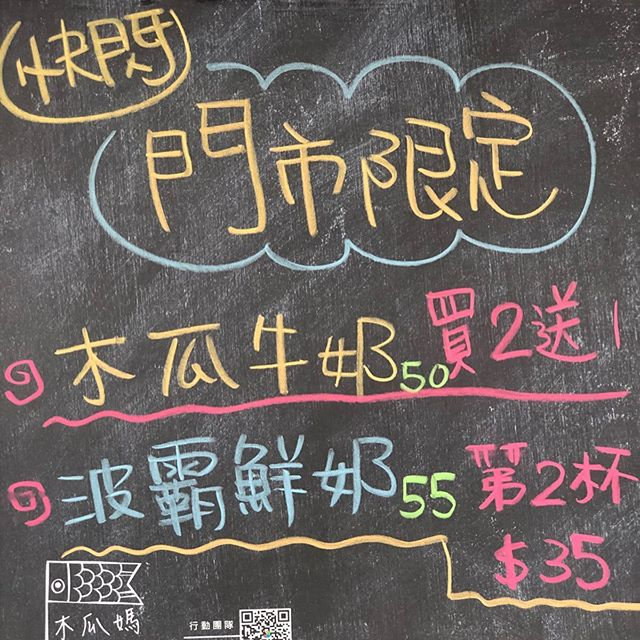 快閃
門市限定
木瓜牛奶 50 買2送1
波霸鮮奶 55 第2杯
$35
木瓜媽 行動團隊